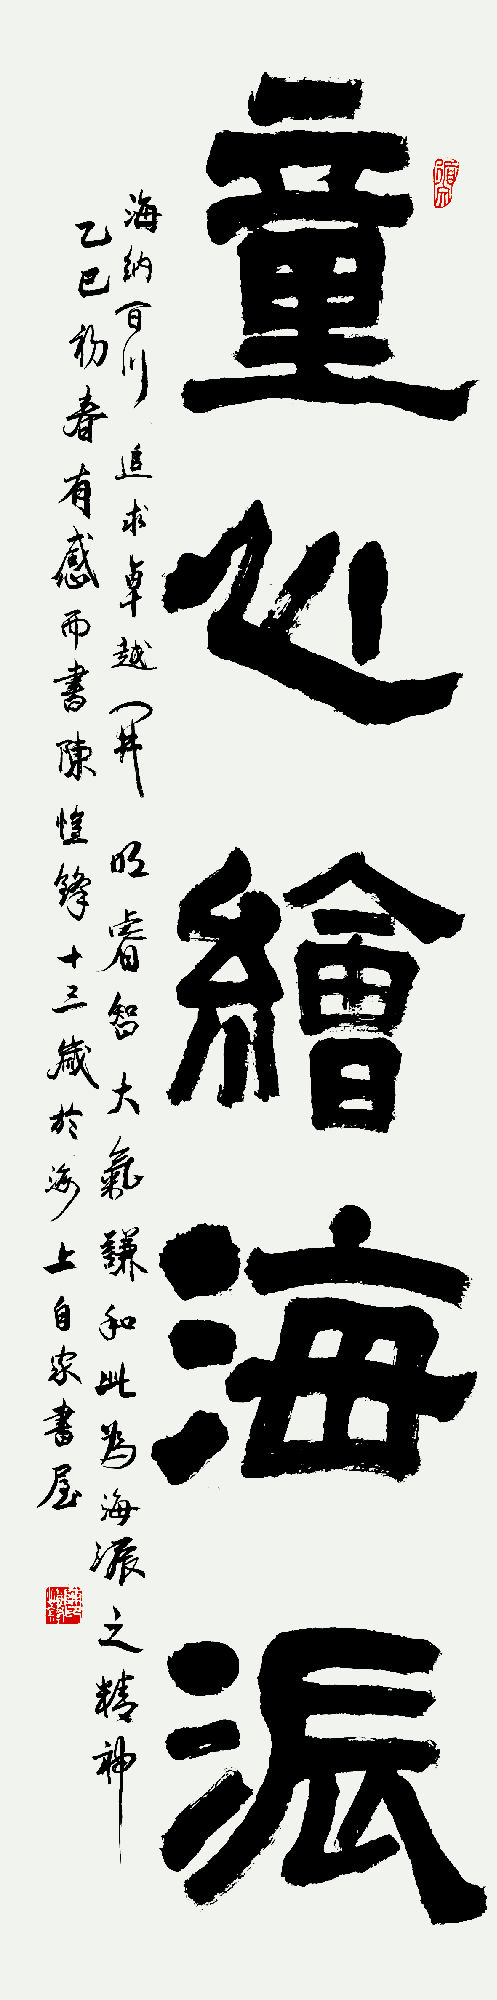 童心繪海派
海納百川追求卓越開明睿智大氣謙和此為海派之精神
乙巳初春有感而書陳愷鋒十三歲於海上自家書屋